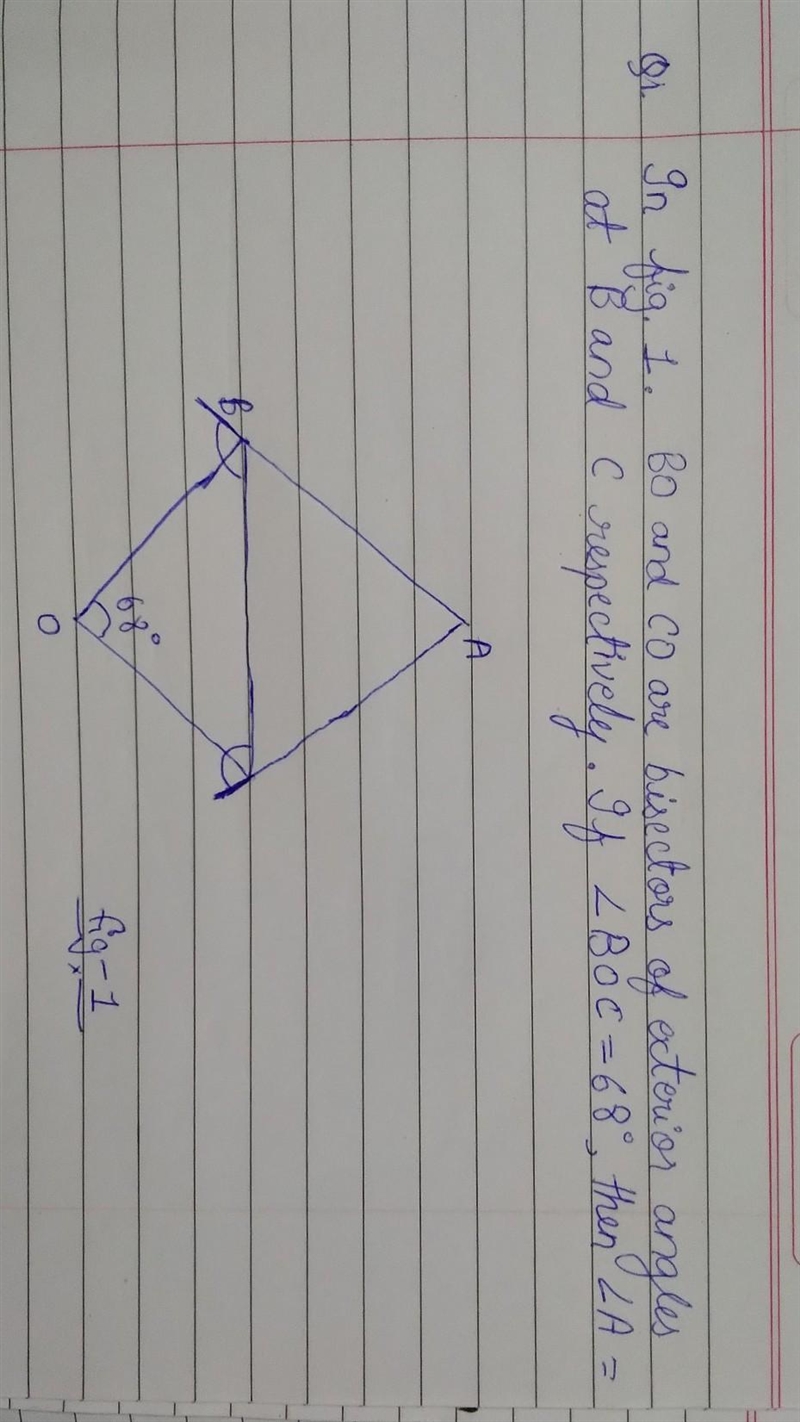 Q1. In fig. 1. BO and CO are bisectors of exterior angles
at B and C respectively. If ∠BOC = 68°, then ∠A =
A
B
68°
O
fig-1